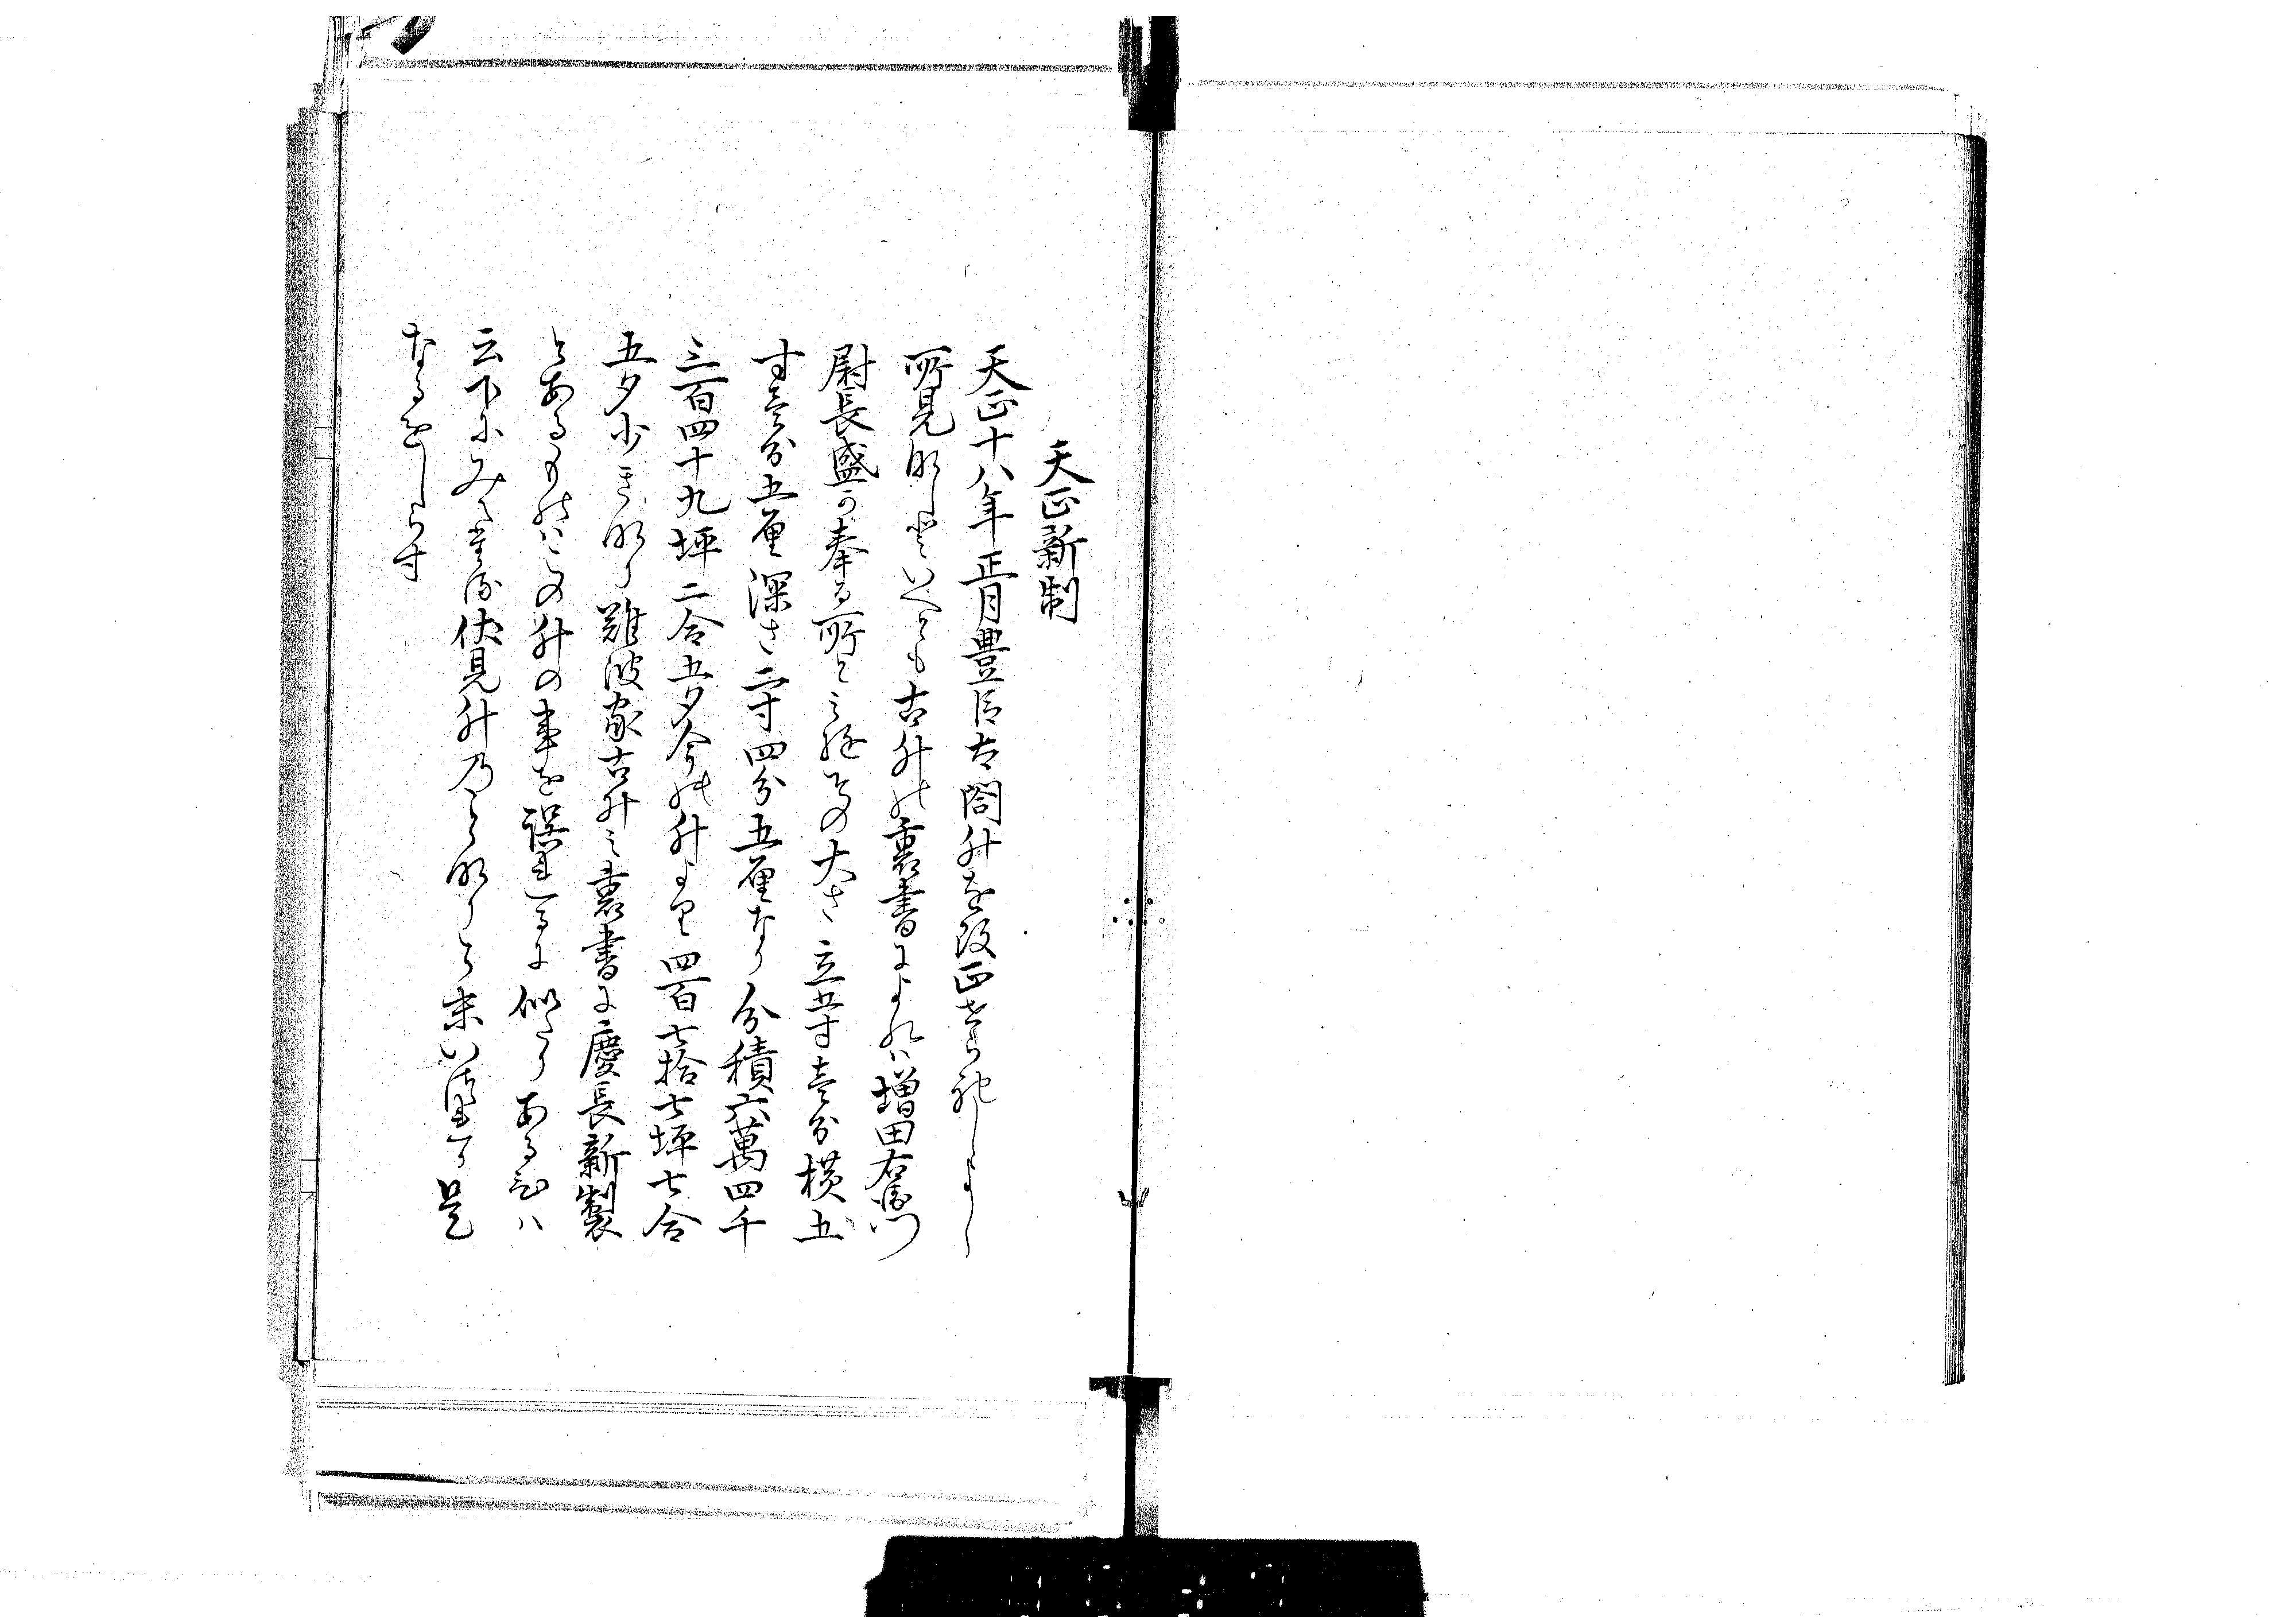 天正新制
天正十八年正月豊臣太閤升を改正せられしよし
所見なしといへとも古升の裏書によれハ増田右衛門
尉長盛か奉る所と見ゆその大さ立五寸壱分横五
寸壱分五厘深さ二寸四分五厘なり分積六萬四千
三百四十九坪二合五夕今の升より四百七拾七坪七合
五夕少きなり難波家古升之裏書に慶長新製
とあるものハこの升の事を誤れるに似たりあるひハ
云下にみへたる伏見升乃となりと未いつれか是
なるをしらす